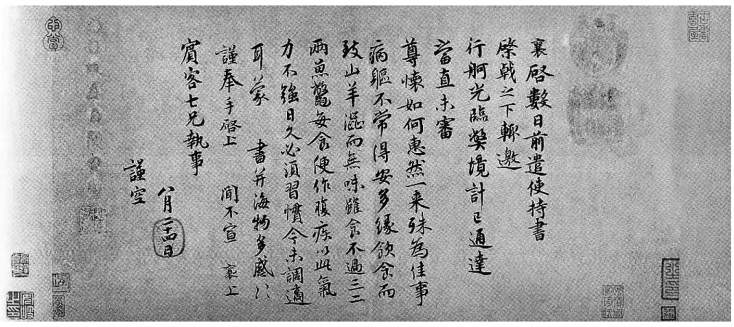 襄啓數日前遣使持書
棨戟之下輙邀
行舸光臨弊境計已通達
當直未審
尊懷如何惠然一来殊為佳事
病軀不常得安多緣飲食而
致山羊澁而無味雖食不過三二
兩魚鼈每食便作腹疾以此氣
力不強日久必須習慣今未調適
耳蒙 書并海物多感〻
謹奉手啓上 聞不宣 襄上
賓客七兄執事
八月廿四日
謹空